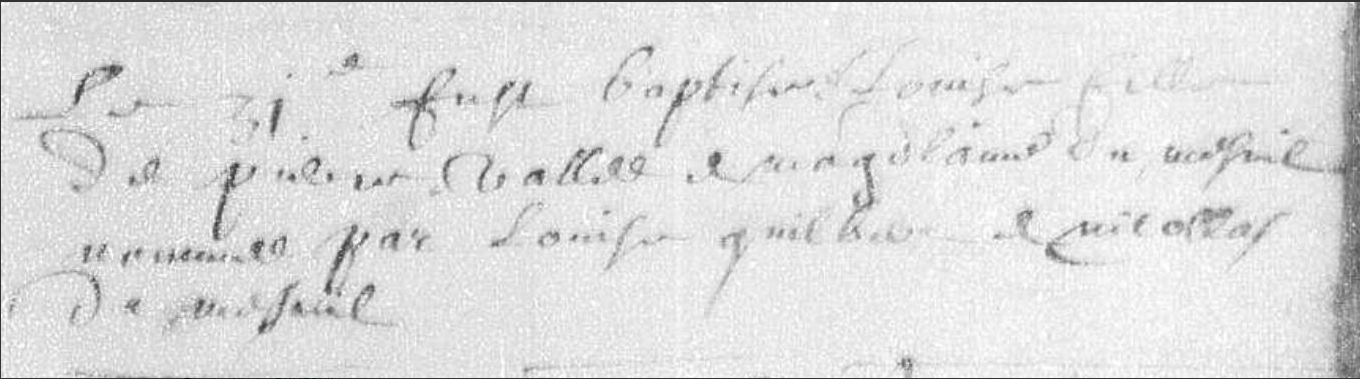 Le 31e fust baptisee Louise fille
de pierre Vallee & magdelaine du mesnil
nommee par Louise quilbee & nicollas
du mesnil